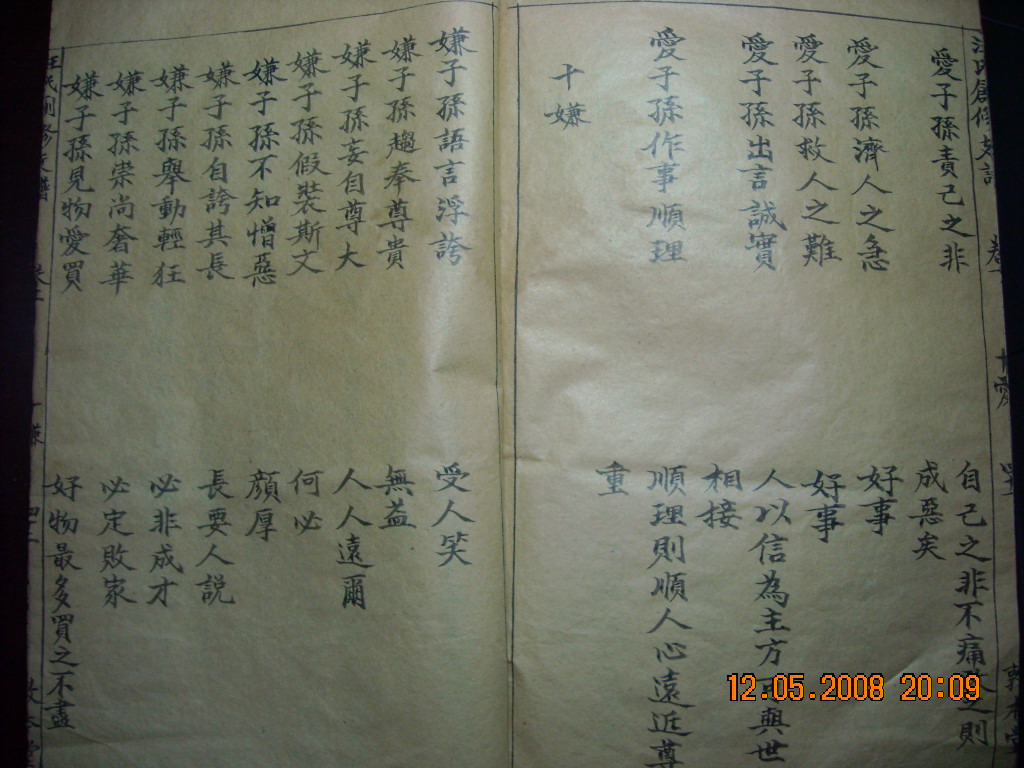 愛子孫責己之非
自己之非不痛改之則
成惡矣
愛子孫濟人之急
好事
愛子孫救人之難
好事
愛子孫出言誠實
人以信為主方可與世
相接
愛子孫作事順理
順理則順人心遠近尊
重
十嫌
嫌子孫語言浮誇
受人笑
嫌子孫趨奉尊貴
無益
嫌子孫妄自尊大
人人遠爾
嫌子孫假裝斯文
何必
嫌子孫不知憎惡
顏厚
嫌子孫自誇其長
長要人説
嫌子孫舉動輕狂
必非成才
嫌子孫崇尚奢華
必定敗家
嫌子孫見物愛買
好物最多買之不盡
十愛
12.05.2008 20:09